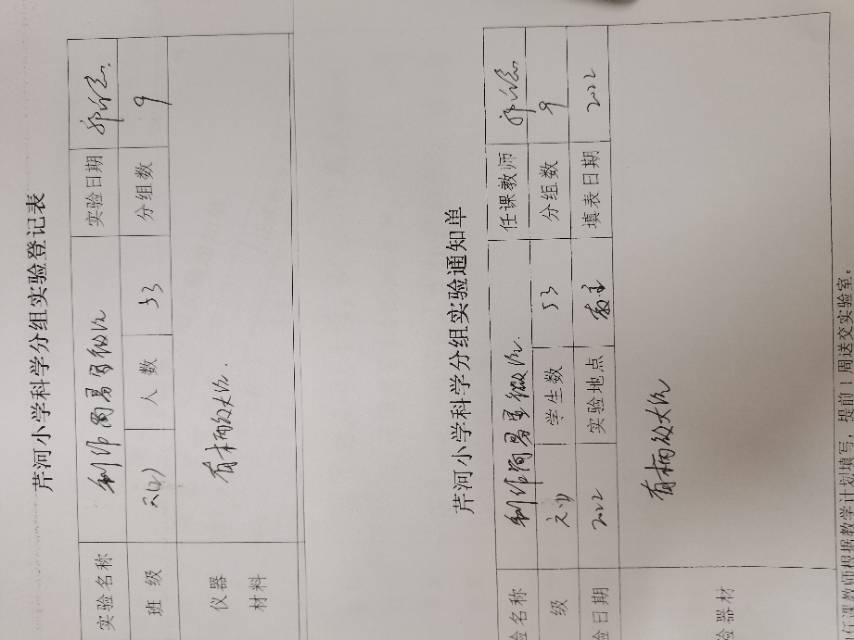 芹河小学科学分组实验登记表
实验名称 制作简易显微镜 实验日期
班级 人数 53 分组数 9
仪器 有柄放大镜.
材料
芹河小学科学分组实验通知单
验名称 制作简易显微镜. 任课教师
级 学生数 53 分组数 9
验日期 2022 实验地点 教室 填表日期 2022
验器材 有柄放大镜
任课教师根据教学计划填写，提前1周送交实验室。